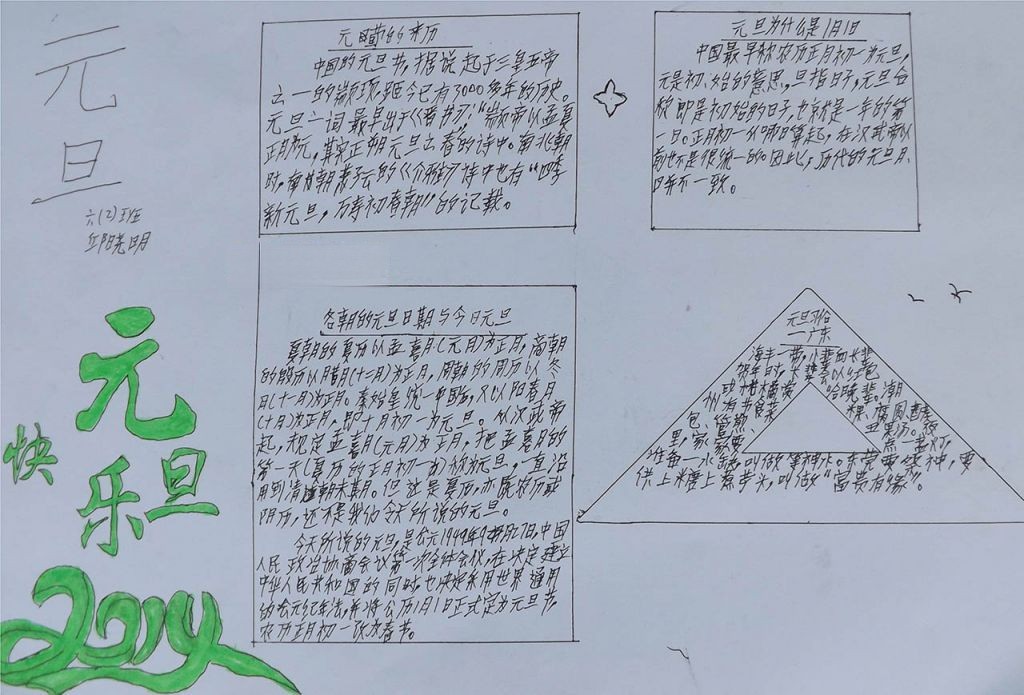 元
旦
六(2)班
邱晓明
元旦
快乐
2014
元旦节的来历
中国的元旦节,据说起于三皇五帝
之一的颛顼,距今已有3000多年的历史。
元旦一词最早出于《晋书》:“颛帝以孟夏
正月为元,其实正朔元旦之春”的诗中。南北朝
时,南朝萧子云的《介雅》诗中也有“四季
新元旦,万寿初春朝”的记载。
元旦为什么是1月1
中国最早称农历正月初一为元旦,
元是初、始的意思,旦指日子,元旦合
称即是初始的日子,也就是一年的第
一日。正月初一从哪日算起,在汉武帝以
前也不是很统一的。因此,历代的元旦月、
日并不一致。
各朝的元旦日期与今日元旦
夏朝的夏历以孟喜月(元月)为正月,商朝
的殷历以腊月(十二月)为正月,周朝的周历以冬
月(十一月)为正月。秦始皇统一中国后,又以阳春月
(十月)为正月,即十月初一为元旦。从汉武帝
起,规定孟喜月(元月)为正月,把孟喜月的
第一天(夏历的正月初一)称为元旦,一直沿
用到清朝末期。但这是夏历,亦既农历或
阴历,还不是我们今天所说的元旦。
今天所说的元旦,是公元1949年9月27日,中国
人民政治协商会议第一次全体会议,在决定建立
中华人民共和国的同时,也决定采用世界通用
的公元纪年法,并将公历1月1日正式定为元旦节,
农历正月初一改为春节。
元旦习俗
广东
海丰一带,小辈向长辈
拜年时,长辈要以红包
或柑橘
给晚辈。潮
点一盏灯,
叫做
供上
叫做“富贵有缘”。